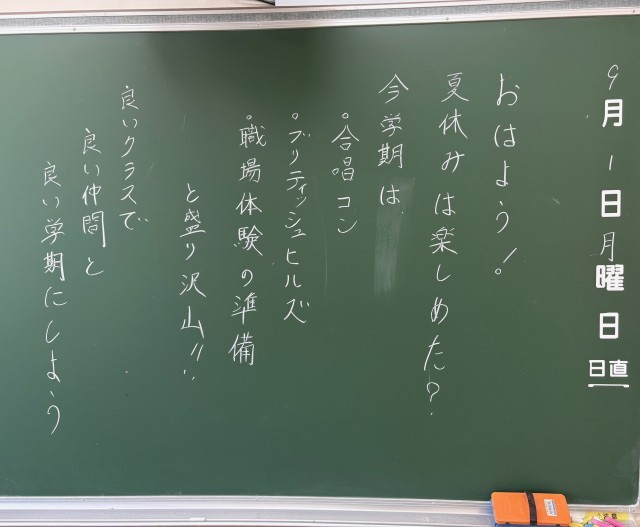 9月1日月曜日
日直
おはよう!
夏休みは楽しめた?
今学期は
・合唱コン
・ブリティッシュヒルズ
・職場体験の準備
と盛り沢山!!
良いクラスで
良い仲間と
良い学期にしよう